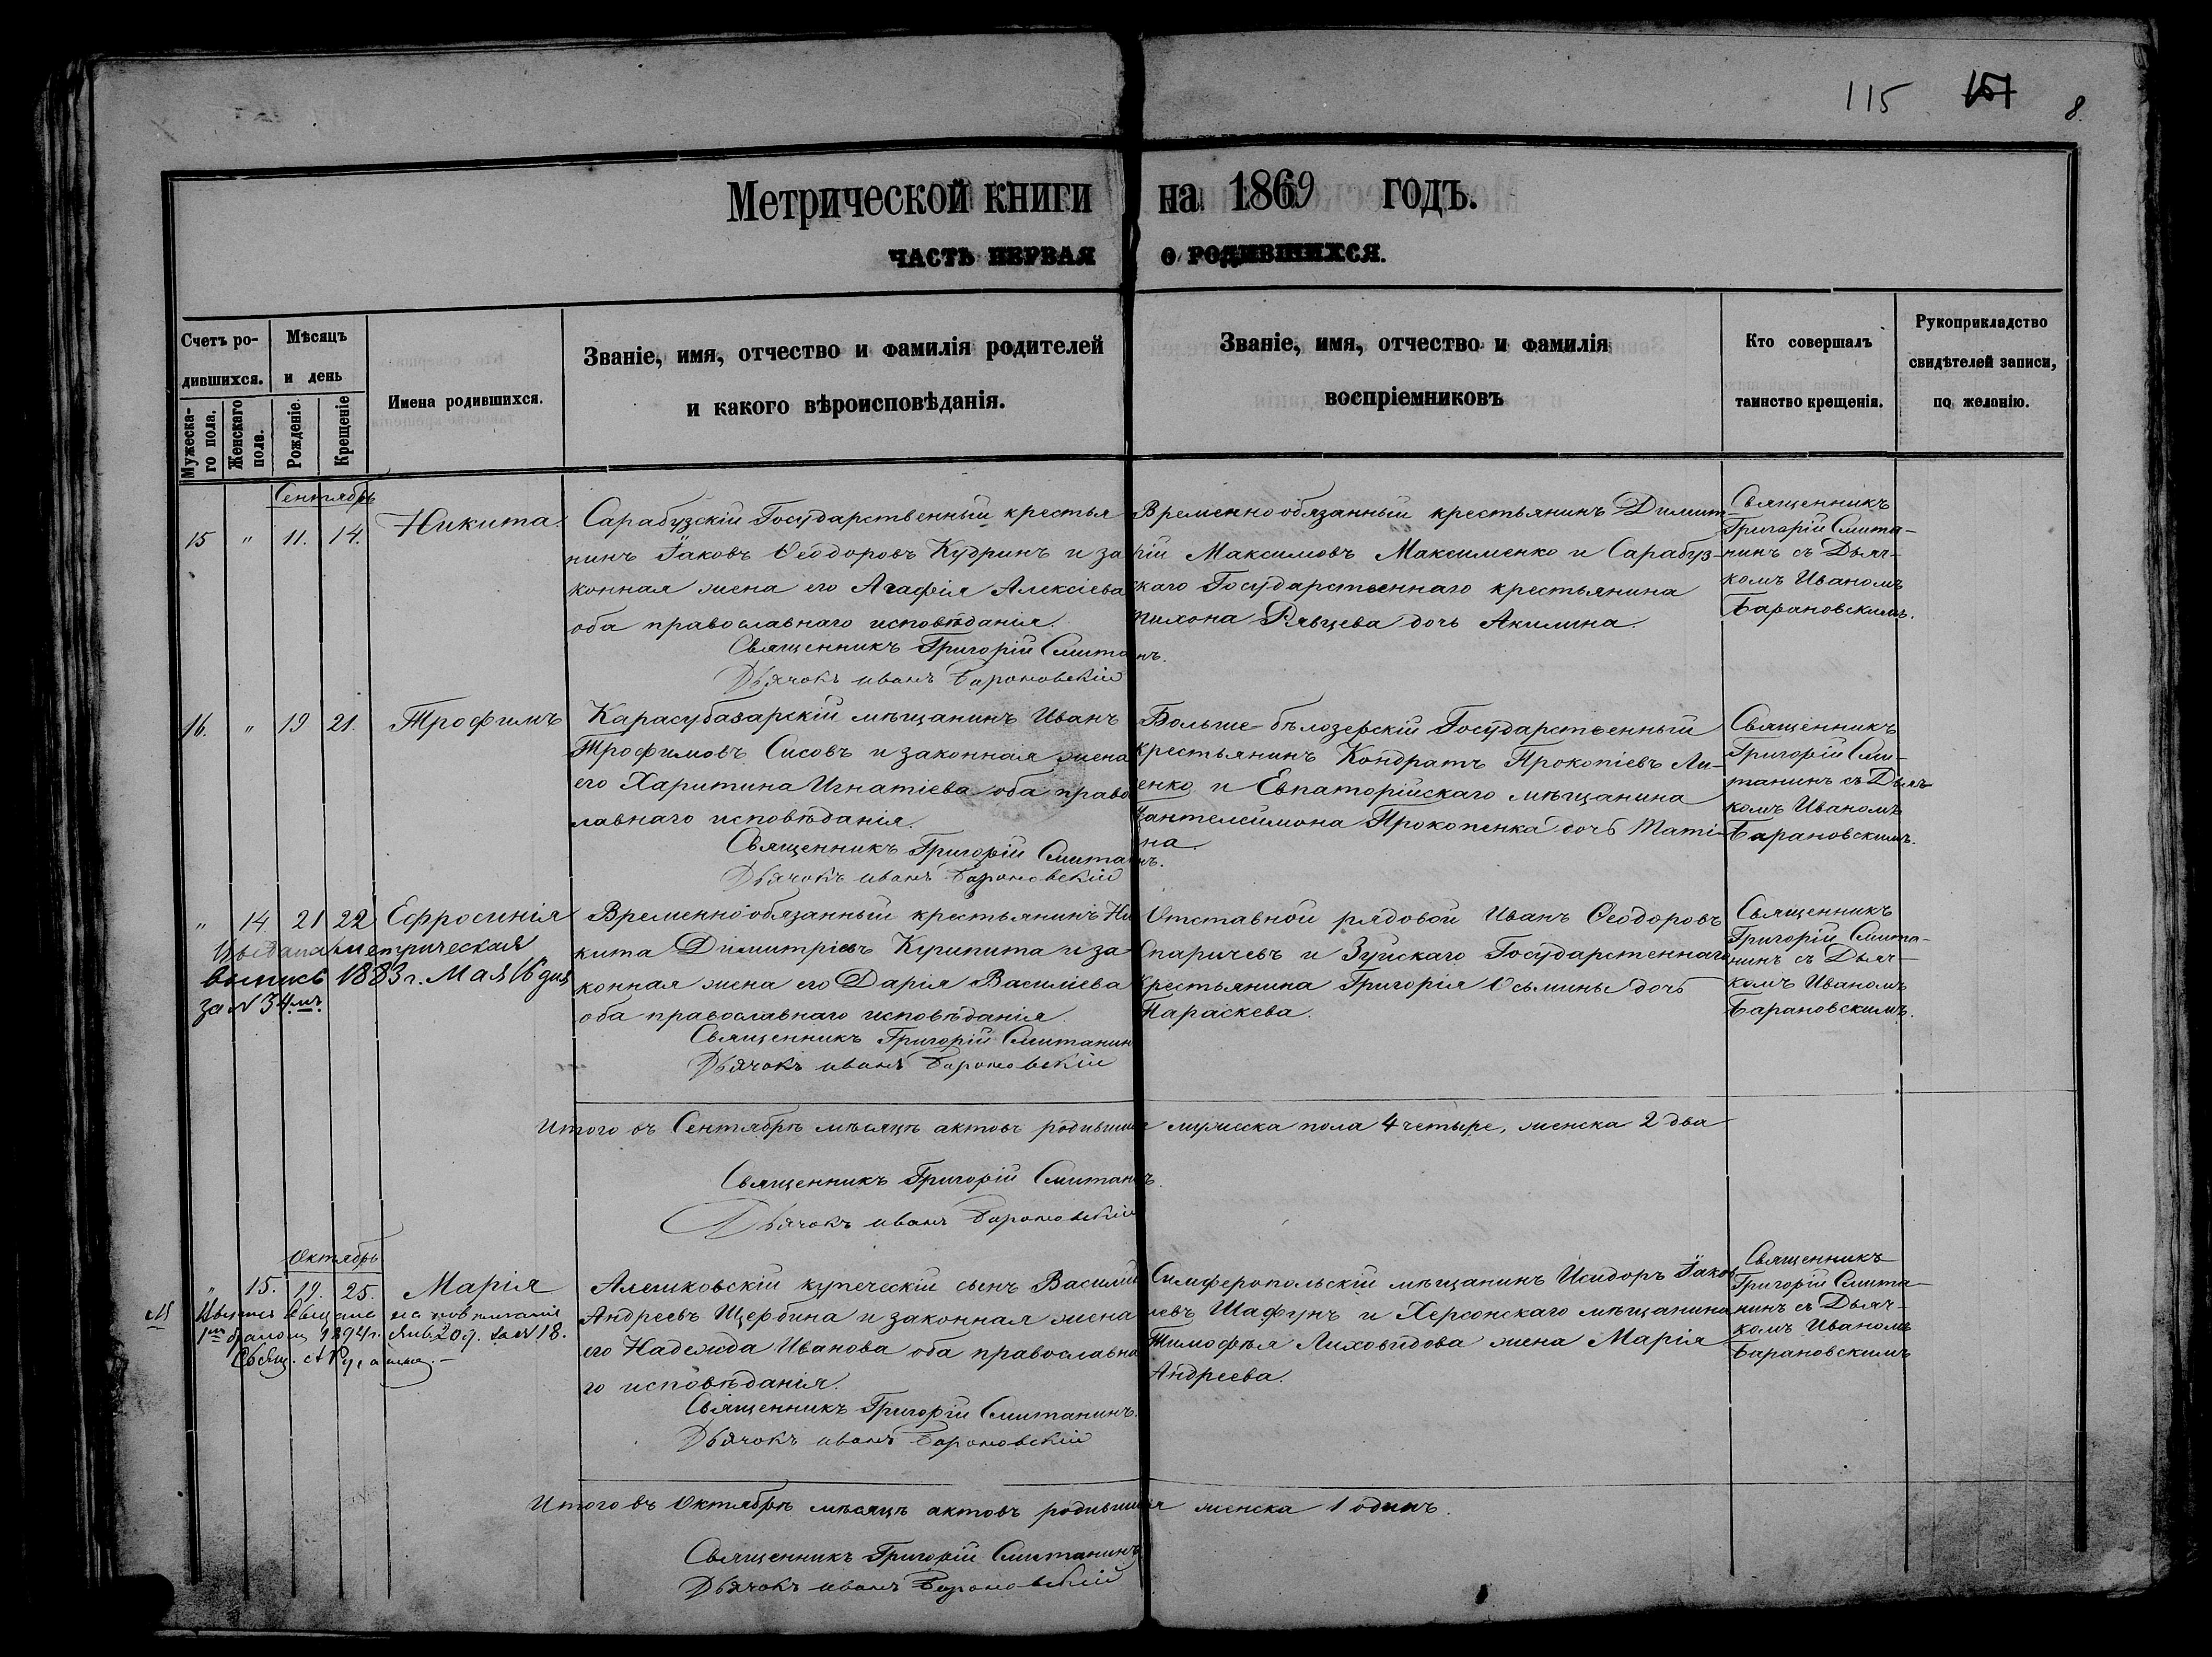 115 151 8.
Метрической книги на 1869 годъ.
ЧАСТЬ ПЕРВАЯ О РОДИВШИХСЯ.
Счетъ ро-
дившихся.
Мужеска-
го пола.
Женскаго
пола.
Мѣсяцъ
и день
Рожденіе.
Крещеніе
Имена родившихся.
Званіе, имя, отчество и фамилія родителей
и какого вѣроисповѣданія.
Званіе, имя, отчество и фамилія
воспріемниковъ
Кто совершалъ
таинство крещенія.
Рукоприкладство
свидѣтелей записи,
по желанію.
Сентябрь
15 " 11. 14. Никита
Сарабузскій Государственный крестья
нинъ Іаковъ Ѳеодоровъ Кудринъ и за
конная жена его Агафія Алексіева
оба православнаго исповѣданія.
Священникъ Григорій Смитанинъ.
Дьячокъ иванъ Барановскій
Временно обязанный крестьянинъ Димит-
рій Максимовъ Максименко и Сарабуз-
каго Государственнаго крестьянина
тихона Рявцева дочь Акилина
Священникъ
Григорій Смита-
нинъ съ Дьяч-
комъ Иваномъ
Барановскимъ.
16. " 19 21. Трофимъ
Карасубазарскій мѣщанинъ Иванъ
Трофимовъ Сисовъ и законная жена
его Харитина Игнатіева оба право
лавнаго исповѣданія.
Священникъ Григорій Смитанинъ.
Дьячокъ иванъ Барановскій
Больше-бѣлозерскій Государственный
крестьянинъ Кондратъ Прокопіевъ Ли-
енко и Евпаторійскаго мѣщанина
Пантелеимона Прокопенка дочь Маті-
на
Священникъ
Григорій Сми-
танинъ съ Дьяч
комъ Иваномъ
Барановскимъ.
" 14. 21 22 Ефросинія
Выдана метрическая
выпись 1883 г. Мая 16 дня
за № 34.мъ
Временно обязанный крестьянинъ Ни
кита Димитріевъ Курипита и за
конная жена его Дарія Василіева
оба православнаго исповѣданія
Священникъ Григорій Смитанин
Дьячокъ иванъ Барановскій
Отставной рядовой Иванъ Ѳеодоровъ
Спаричевъ и Зуйскаго Государственнаго
Крестьянина Григорія Осьмины дочь
Параскева.
Священникъ
Григорій Смита-
нинъ съ Дьяч-
комъ Иваномъ
Барановскимъ.
Итого въ Сентябрѣ мѣсяцѣ актовъ родившихся мужеска пола 4 четыре, женска 2 два
Священникъ Григорій Смитанинъ.
Дьячокъ иванъ Барановскій
Октябрь
" 15. 19. 25. Марія
1894 г. Янв. 20 д. за № 18.
Свящ.
Алешковскій купеческій сынъ Василій
Андреевъ Щербина и законная жена
его Надежда Иванова оба православна
го исповѣданія.
Священникъ Григорій Смитанинъ.
Дьячокъ иванъ Барановскій
Симферопольскій мѣщанинъ Исидоръ Іаков
левъ Шафунъ и Херсонскаго мѣщанина
Тимофѣя Лиховидова жена Марія
Андреева.
Священникъ
Григорій Смита-
нинъ съ Дьяч-
комъ Иваномъ
Барановскимъ
Итого въ Октябрѣ мѣсяцѣ актовъ родившихся женска 1 одинъ.
Священникъ Григорій Смитанинъ
Дьячокъ иванъ Барановскій